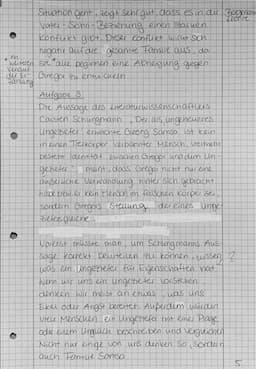 Situation geht, zeigt sehr gut, dass es in der
Vater-Sohn-Beziehung einen starken
Konflikt gibt. Dieser Konflikt wirkt sich
negativ auf die gesamte Familie aus, da
sie alle beginnen eine Abneigung gegen
Gregor zu entwickeln.
im
weiteren
Verlauf
Aufgabe 3
Die Aussage des Literaturwissenschaftlers
Carsten Schlingmann „Der als ungeheueres
Ungeziefer erwachte Georg Samsa ist kein
in einen Tierkörper verbannter Mensch, vielmehr
besteht Identität zwischen Gregor und dem Un-
geziefer" meint, dass Gregor nicht nur eine
äußerliche Verwandlung hinter sich gebracht
kein Mensch im falschen Körper sei,
sondern Gregors Stellung der eines Unge-
ziefers gleiche.
Vorerst müsste man, um Schlingmanns Aus-
sage korrekt beurteilen zu können, wissen,
was ein Ungeziefer für Eigenschaften hat.
Wenn wir uns ein Ungeziefer vorstellen
denken wir meist an etwas, was uns
Ekel oder Angst bereitet. Außerdem würden
viele Menschen ein Ungeziefer mit einer Plage
oder einem Unglück beschreiben und vergleichen.
Nicht nur einige von uns denken so, sondern
auch Familie Samsa.
?
5